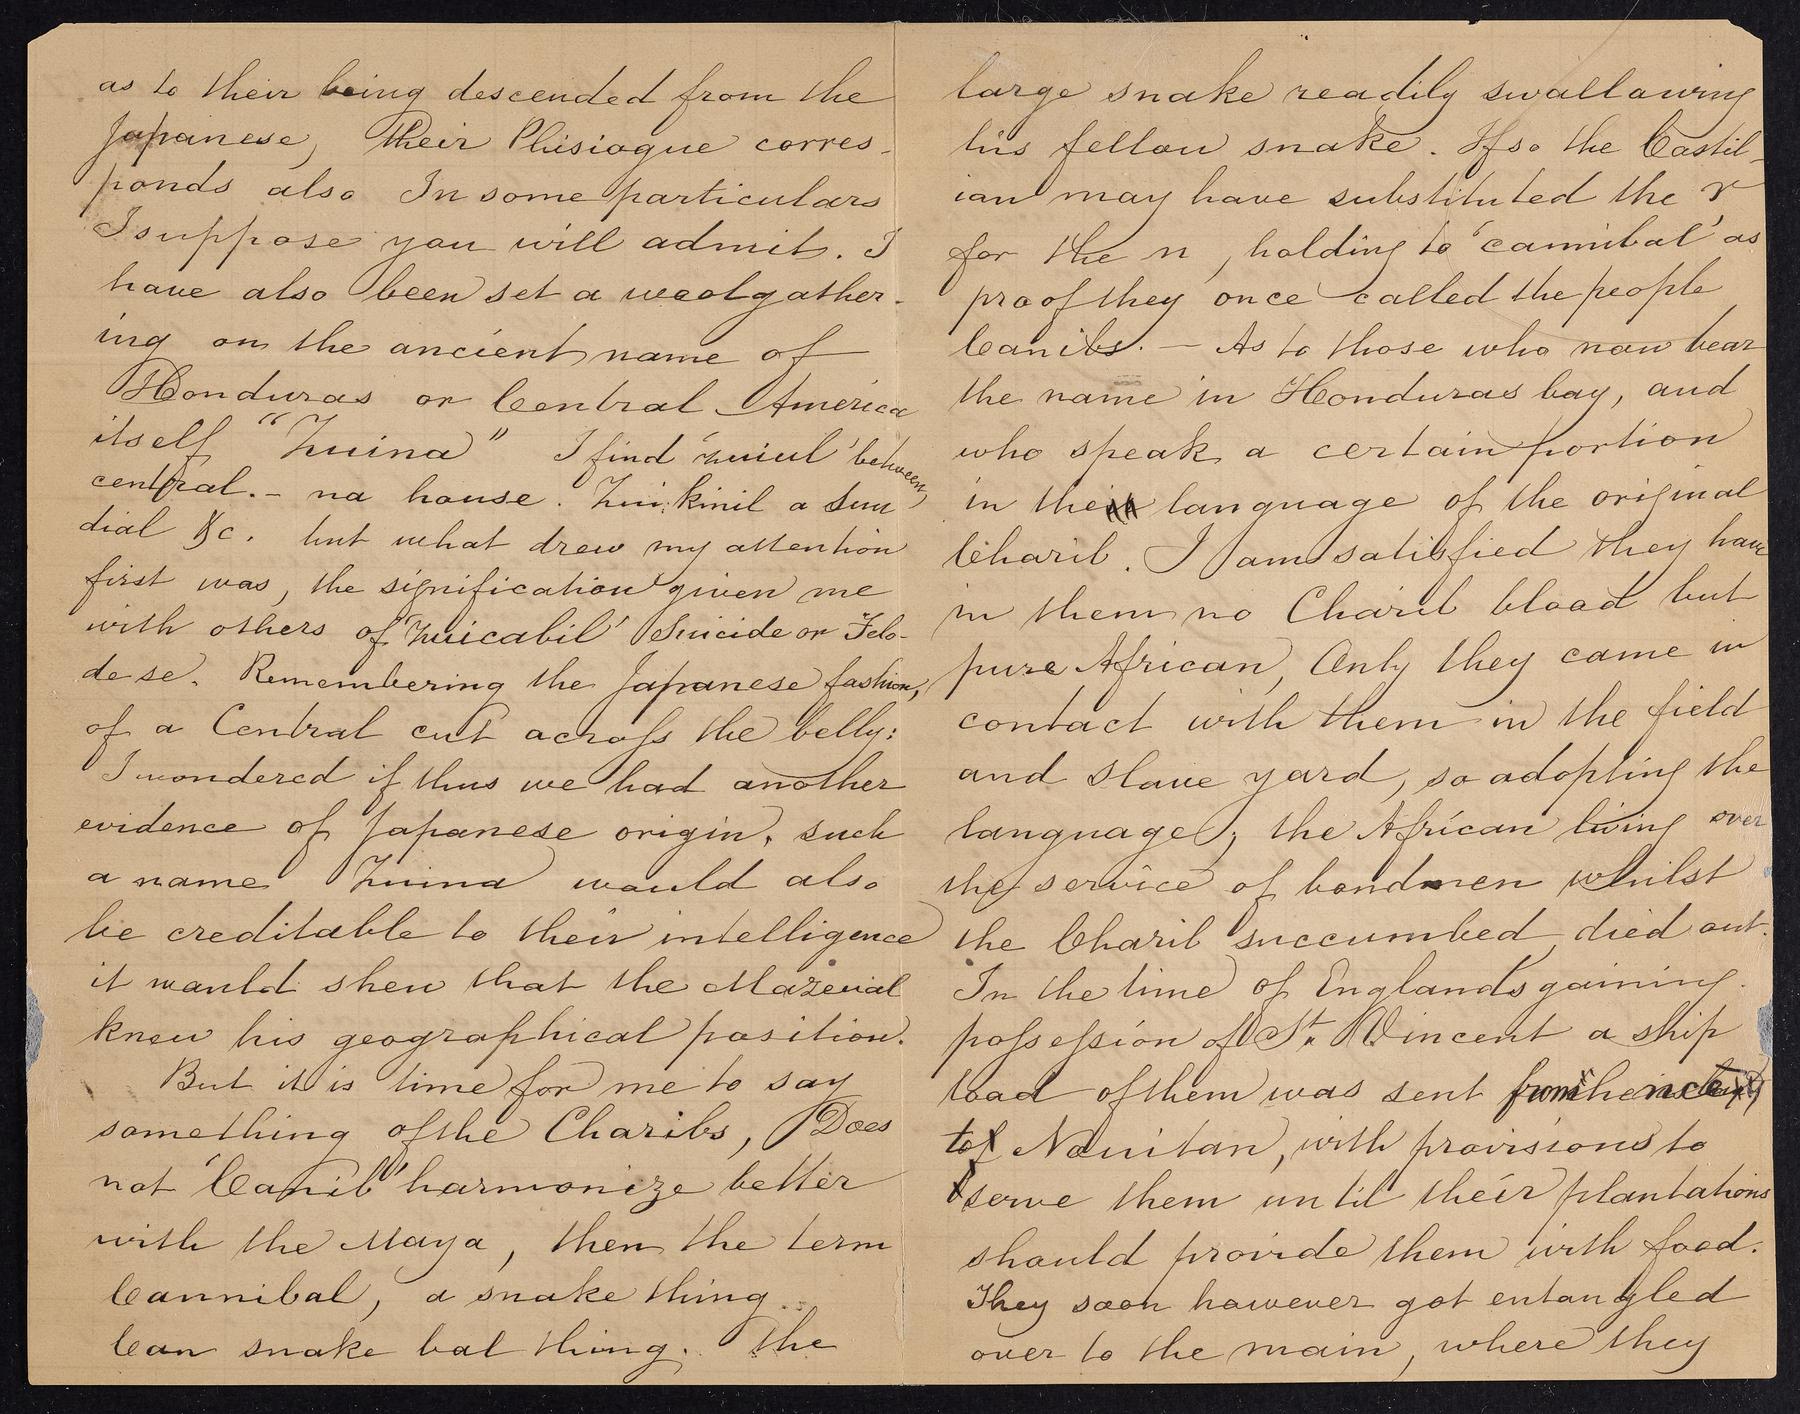 as to their being descended from the
Japanese, Their Phisioque corres-
ponds also In some particulars
I suppose you will admit. I
have also been set a woolgather-
ing on the ancient name of
Honduras or Central America
itself "Zuina" I find 'zuiul' between,
central. - na house. Zui kinil a Sun
dial &c. but what drew my attention
first was, the signification given me
with others of 'Zuicabil' Suicide or Felo-
de se. Remembering the Japanese fashion,
of a Central cut across the belly:
I wondered if thus we had another
evidence of Japanese origin. such
a name Zuina would also
be creditable to their intelligence
it would shew that the Mazeual
knew his geographical position.
But it is time for me to say
something of the Charibs, Does
not 'Canib' harmonize better
with the Maya, then the term
Cannibal, a snake thing
Can snake bal thing. the
large snake readily swallowing
his fellow snake. If so the Castil-
ian may have substituted the r
for the n, holding to 'cannibal' as
proof they once called the people
Canibs. - As to those who now bear
the name in Honduras bay, and
who speak a certain portion
in the language of the original
Charib. I am satisfied they have
in them no Charib blood but
pure African, Only they came in
contact with them in the field
and slave yard, so adopting the
language; the African living over
the service of bondmen whilst
the Charib succumbed, died out.
In the time of Englands gaining
possession of St. Vincent a ship
load of them was sent from thence
to Nauitan, with provisions to
serve them until their plantations
should provide them with food.
They soon however got entangled
over to the main, where they